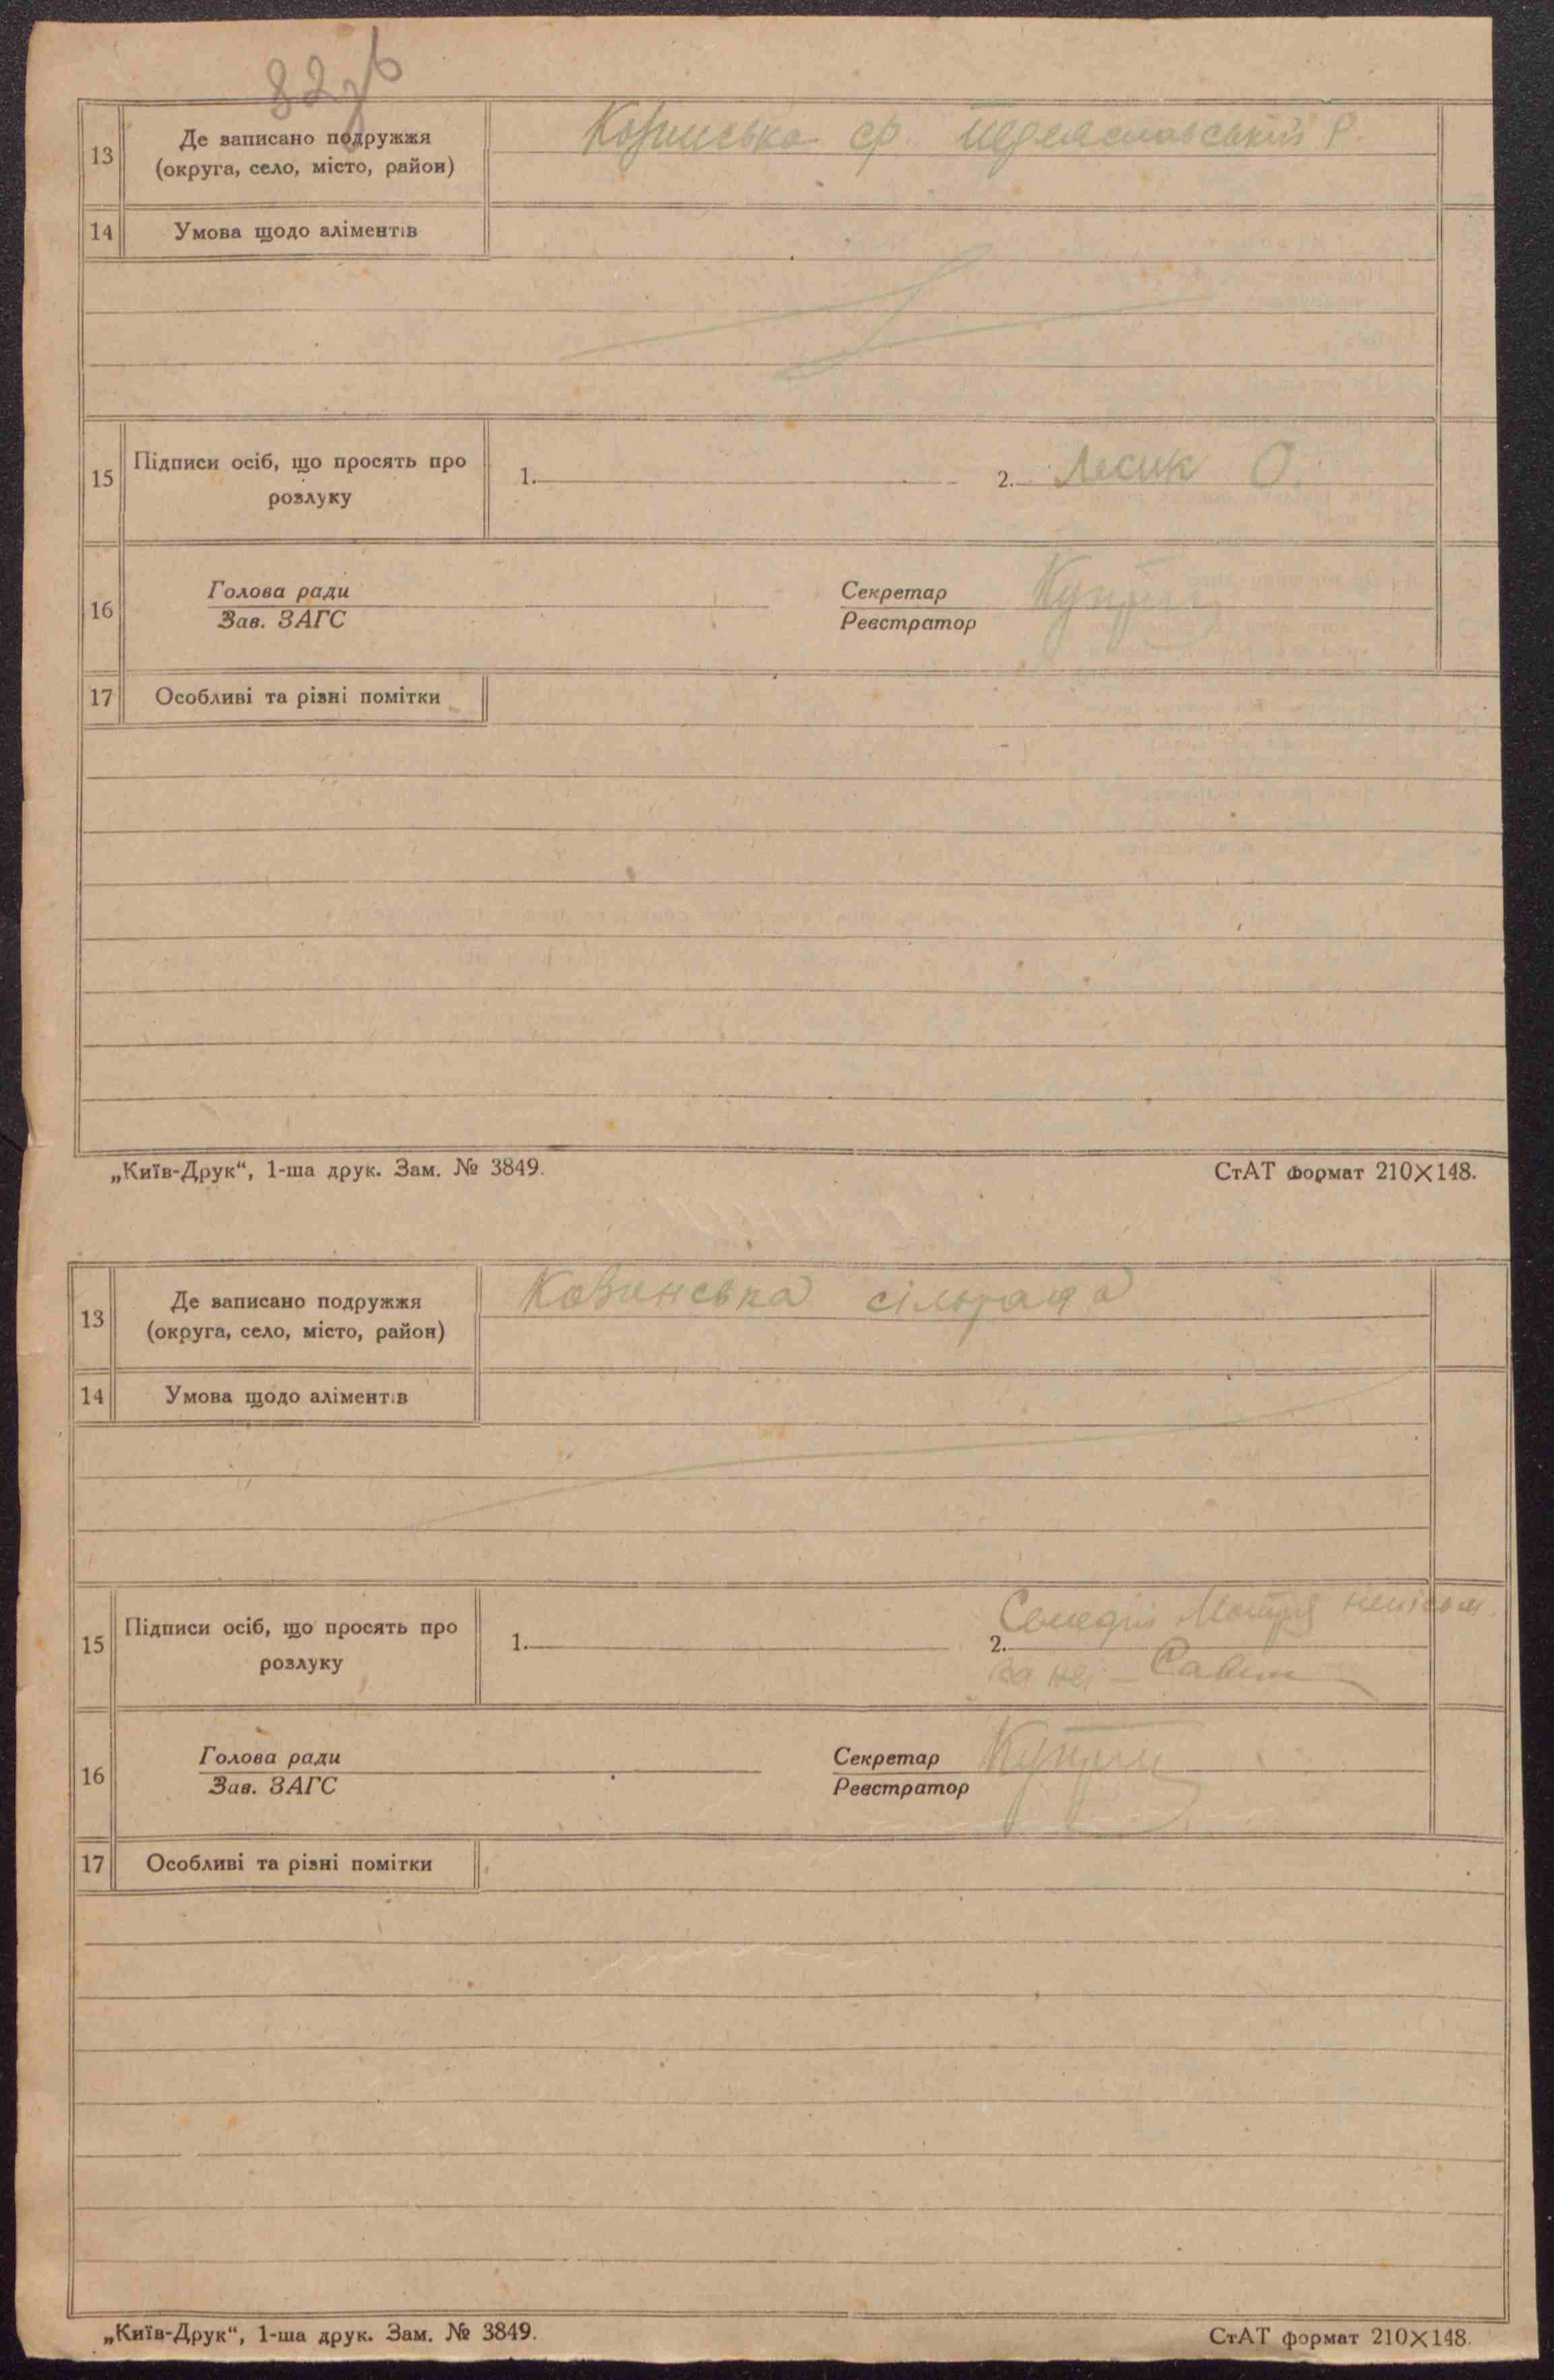 82зв
13 Де записано подружжя (округа, село, місто, район) Козинська ср. Переяславський р.
14 Умова щодо аліментів
15 Підписи осіб, що просять про розлуку 1. 2. Лесик О.
16 Голова ради Секретар
Зав. ЗАГС Реєстратор
17 Особливі та різні помітки
„Київ-Друк“, 1-ша друк. Зам. № 3849. СтАТ формат 210×148.
13 Де записано подружжя (округа, село, місто, район) Козинська сільрада
14 Умова щодо аліментів
15 Підписи осіб, що просять про розлуку 1. 2. Мотря
за неї —
16 Голова ради Секретар
Зав. ЗАГС Реєстратор
17 Особливі та різні помітки
„Київ-Друк“, 1-ша друк. Зам. № 3849. СтАТ формат 210×148.